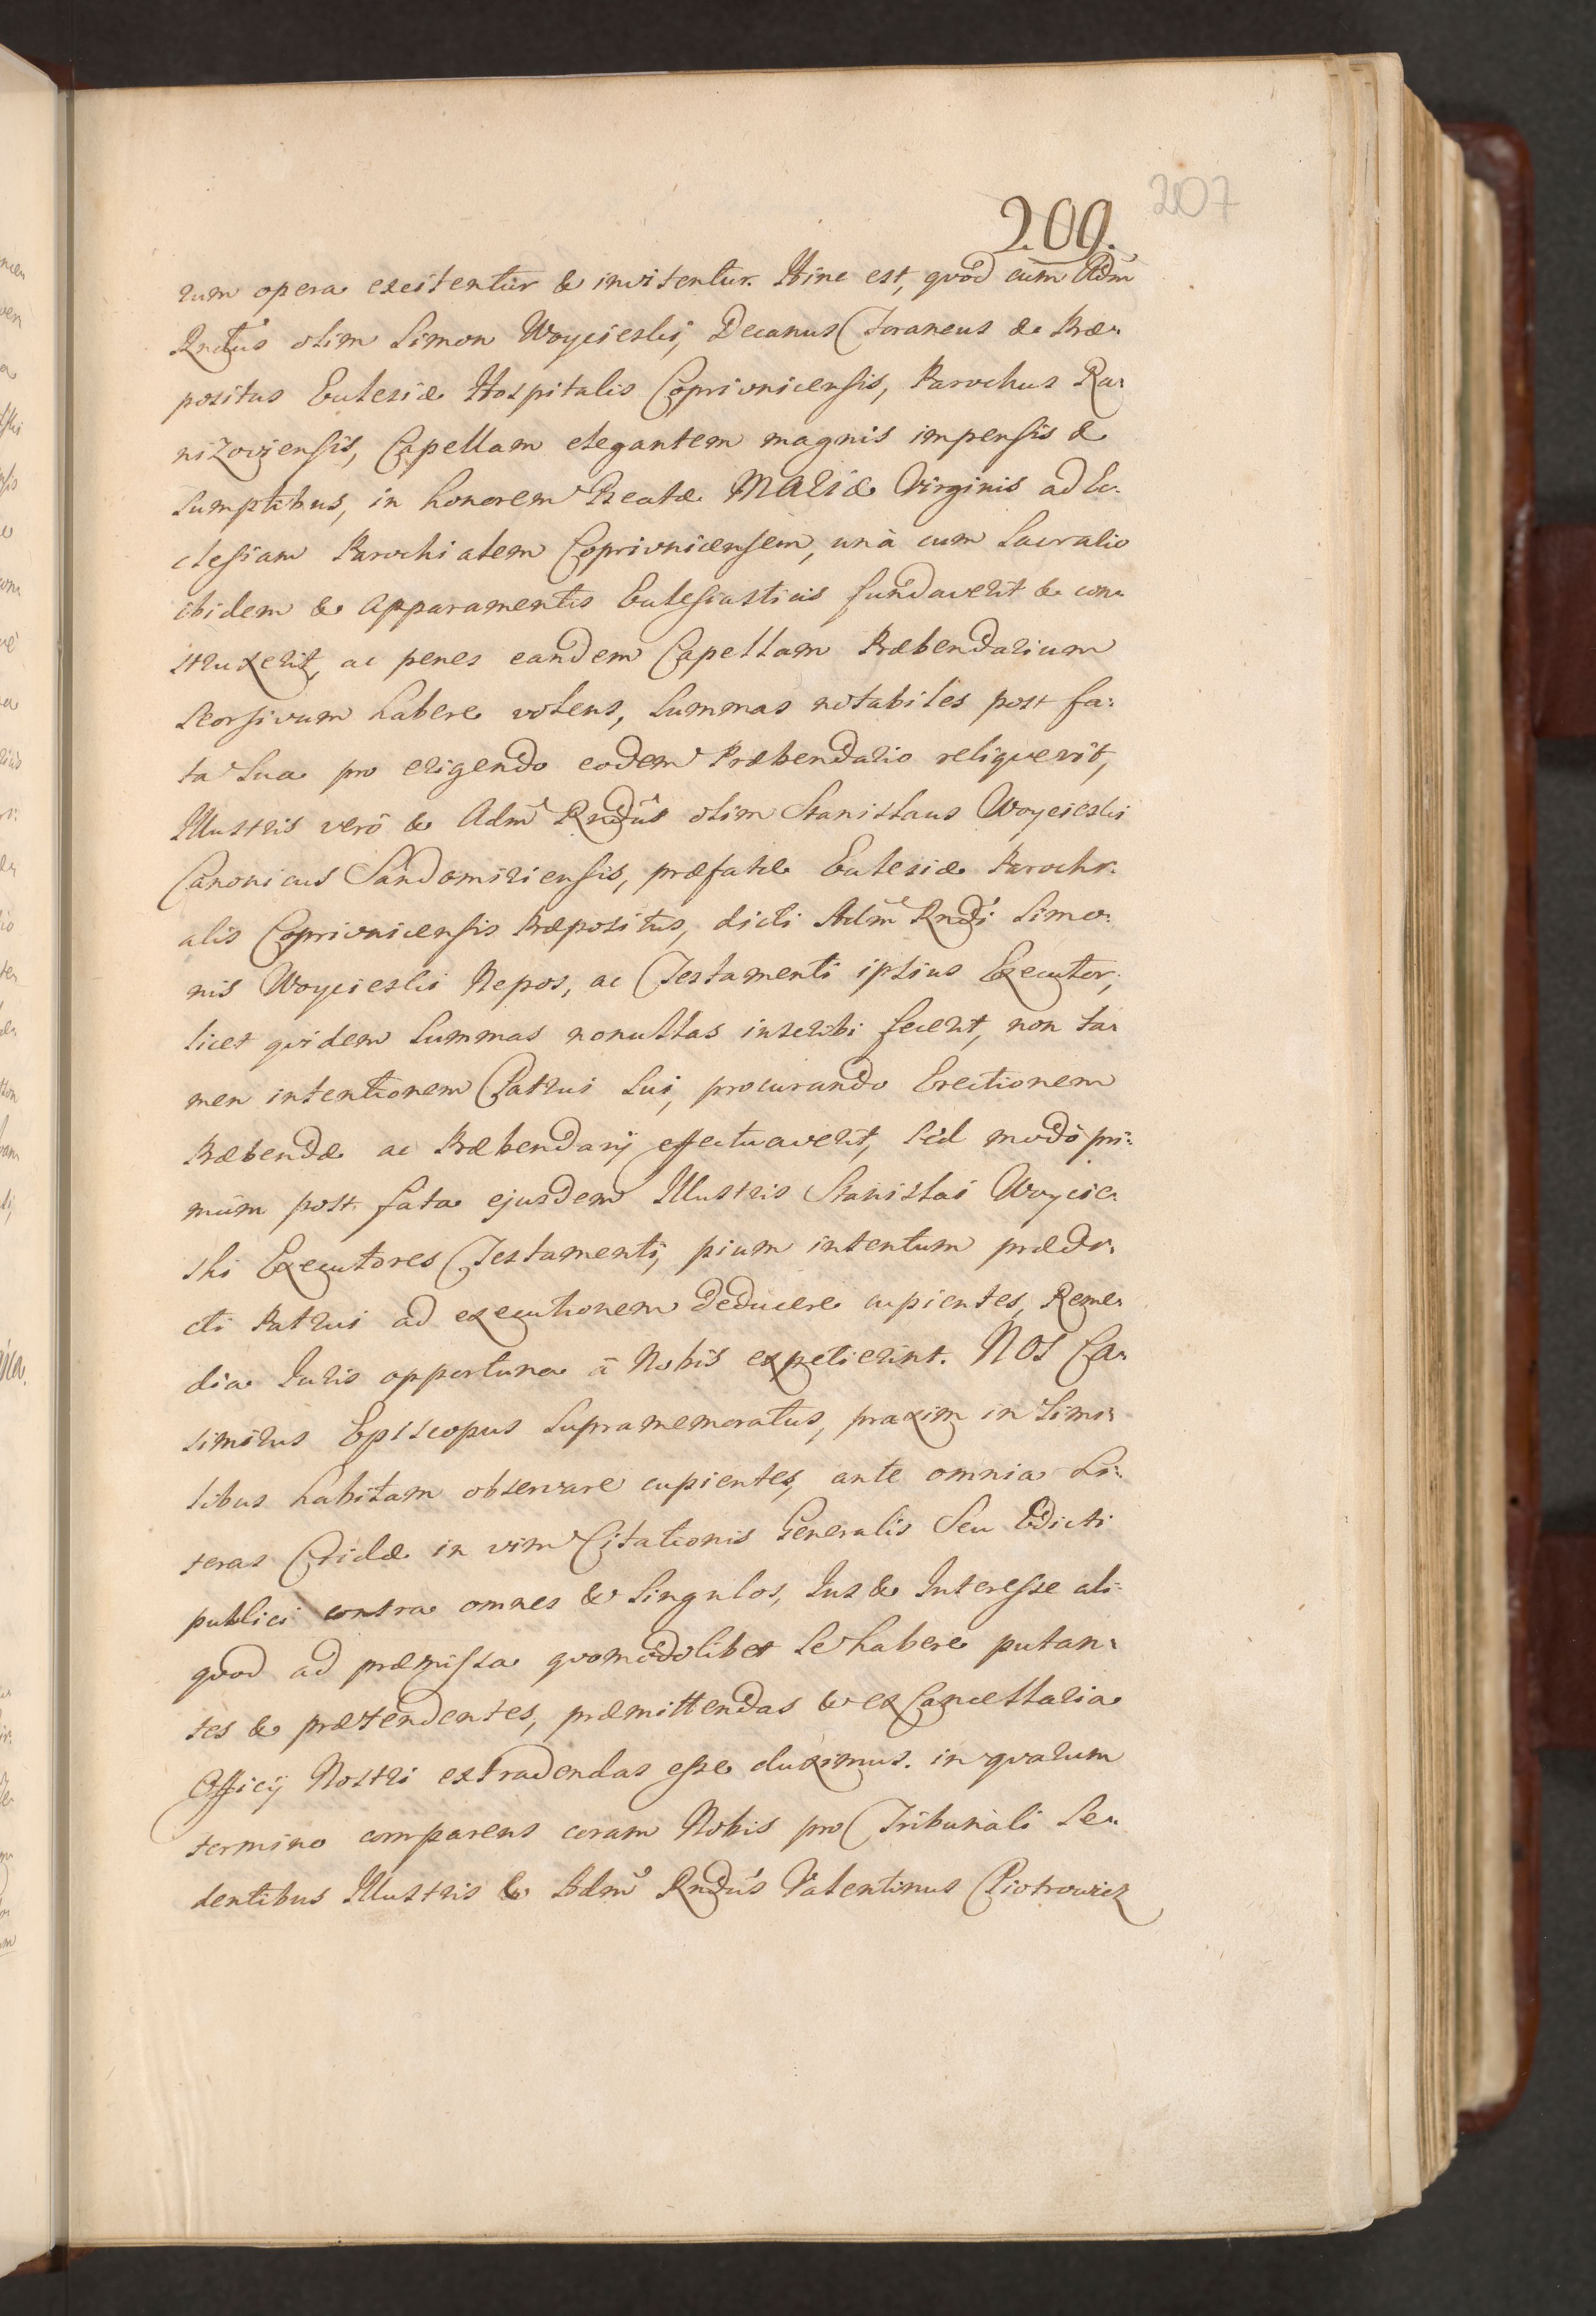 209.
207
rum opera excitentur & invitentur. Hinc est, qvod cum Adm̃
Rndus olim Simon Woycieski, Decanus Foraneus & Præ-
positus Ecclesiæ Hospitalis Coprivnicensis, Parochus Ra-
niżoviensis, Capellam elegantem magnis impensis &
Sumptibus, in honorem Beatæ MARIÆ Virginis ad Ec-
clesiam Parochialem Coprivnicensem, unà cum Sacrario
ibidem & Apparamentis Ecclesiasticis fundaverit & con-
struxerit, ac penes eandem Capellam Præbendarium
Seorsivum habere volens, Summas notabiles post fa-
ta Sua pro erigendo eodem Præbendario reliquerit,
Illustris verò & Adm̃ Rndus olim Stanislaus Woycieski
Canonicus Sandomiriensis, præfatæ Ecclesiæ Parochi-
alis Coprivnicensis Præpositus, dicti Adm̃ Rndi Simo-
nis Woycieski Nepos, ac Testamenti ipsius Executor,
licet qvidem Summas nonullas inscribi fecerit, non ta-
men intentionem Patrui Sui, procurando Erectionem
Præbendæ ac Præbendarij effectuaverit, Sed modò pri-
mùm post fata ejusdem Illustris Stanislai Woycie-
ski Executores Testamenti, pium intentum prædi-
cti Patrui ad executionem deducere cupientes, Reme-
dia Juris opportuna à Nobis expetierint. NOS Ca-
simirus Episcopus Supramemoratus, praxim in Simi-
libus habitam observare cupientes, ante omnia Li-
teras Cridæ in vim Citationis Generalis Seu Edicti
publici contra omnes & Singulos, Jus & Interesse ali-
qvod ad præmissa qvomodolibet Se habere putan-
tes & prætendentes, præmittendas & ex Cancellaria
Officij Nostri extradendas esse duximus. in qvarum
termino comparens coram Nobis pro Tribunali Se-
dentibus Illustris & Adm̃ Rndus Valentinus Piotrowicz